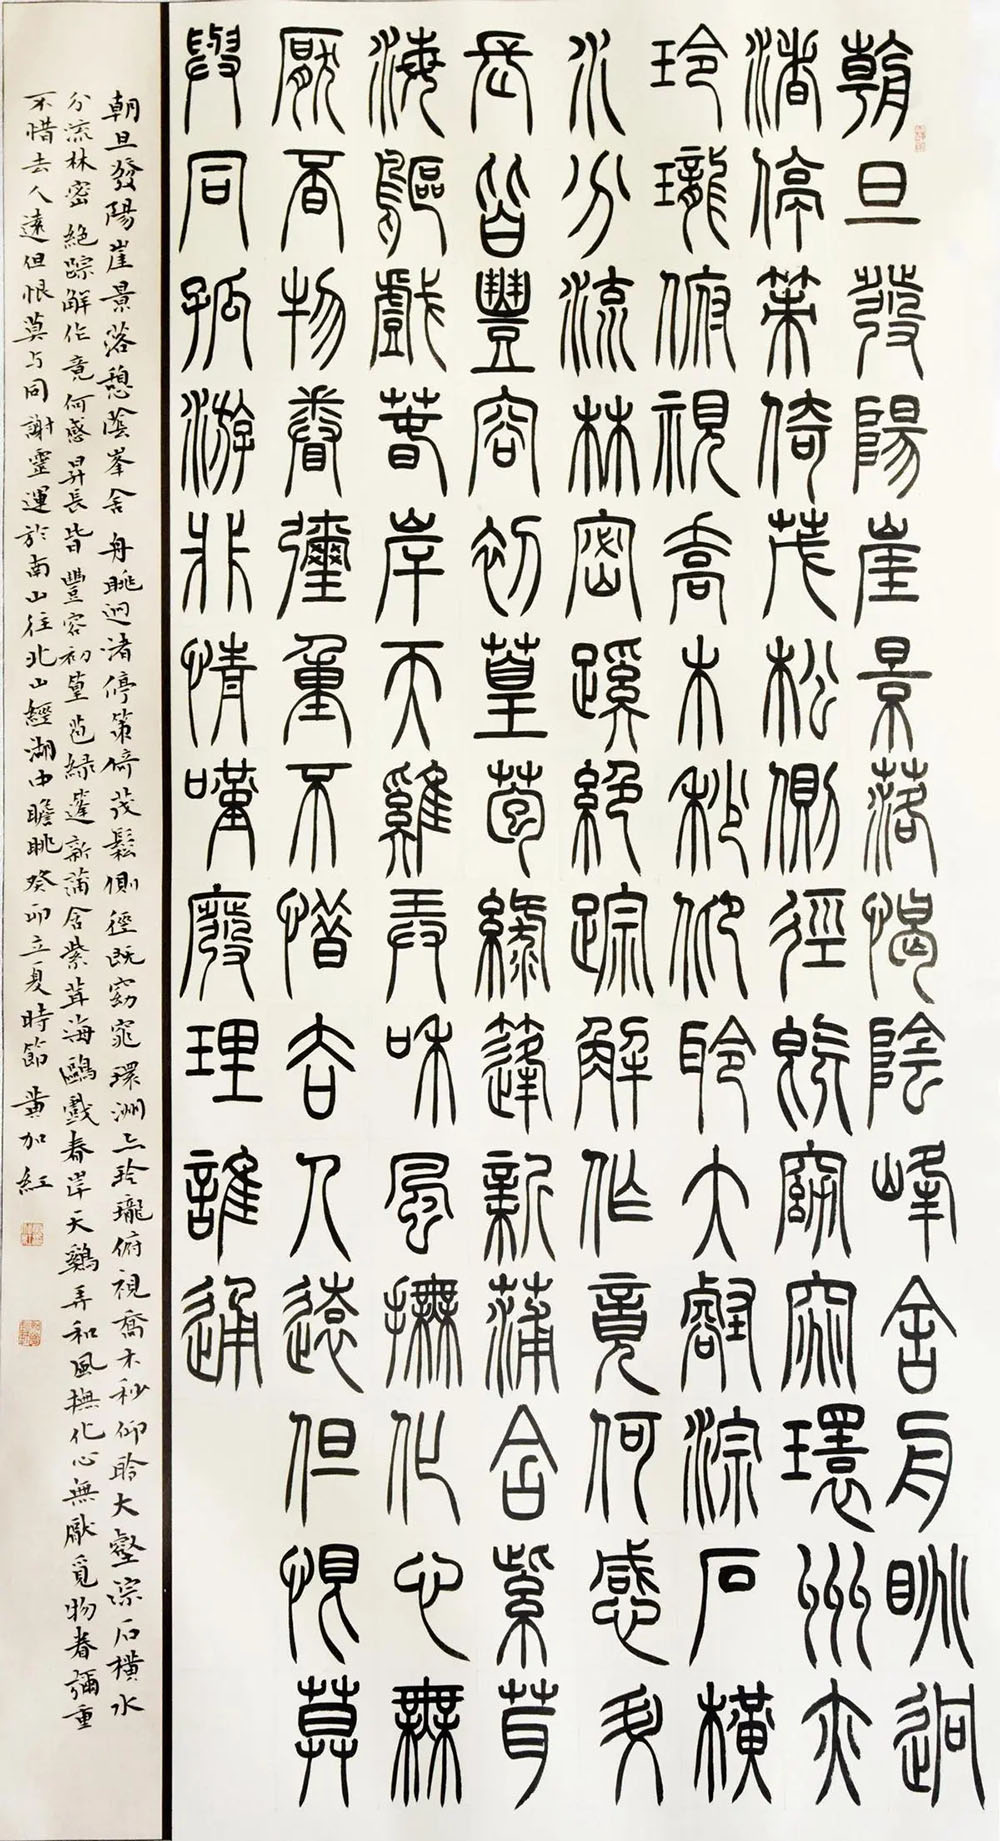 朝旦發陽崖景落愒陰峰舍舟眺迥
渚停策倚茂松側徑既窈窕環州亦
玲瓏俯視喬木杪仰聆大壑淙石橫
水分流林密蹊絕踪解作竟何感升
長皆豐容初篁苞綠篷新蒲含紫茸
海鷗戲春岸天雞弄和風撫化心無
厭覓物眷彌重不惜去人遠但恨莫
與同孤游非情嘆廢理誰通
朝旦發陽崖景落憩蔭峯舍舟眺迥渚停策倚茂鬆側徑既窈窕環洲亦玲瓏俯視喬木秒仰聆大壑淙石橫水
分流林密絕踪解作竟何感昇長皆豐容初篁苞綠蓬新蒲含紫茸海鷗戲春岸天鷄弄和風撫化心無厭覓物眷彌重
不惜去人遠但恨莫与同謝靈運於南山往北山經湖中瞻眺癸卯立夏時節黄加紅